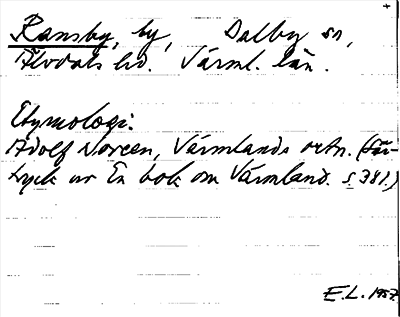 Ransby, by, Dalby sn,
Älvdals hd. Värml. län.
Etymologi:
Adolf Noreen, Värmlands ortn. (Sär-
tryck ur En bok om Värmland. s. 381.)
E.L. 1957.